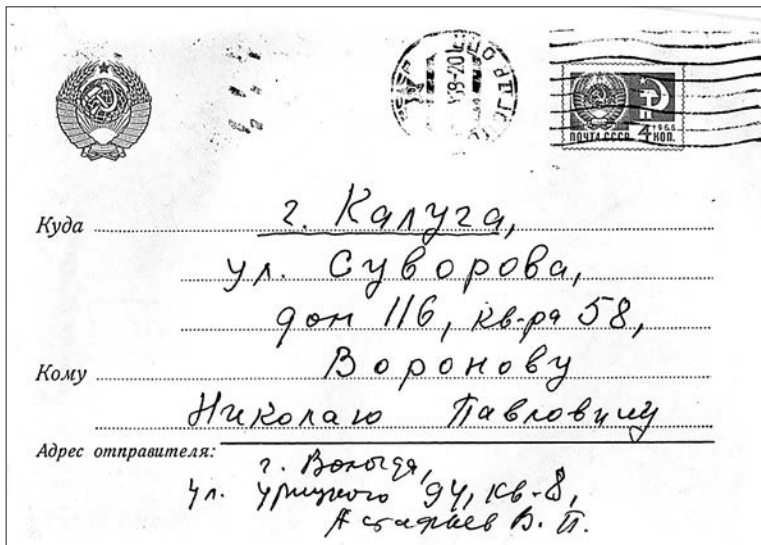 ПОЧТА СССР 1966 4 КОП.
Куда г. Калуга,
ул. Суворова,
дом 116, кв-ра 58,
Кому Воронову
Николаю Павловичу
Адрес отправителя:
г. Вологда,
ул. Урицкого 94, кв-8,
Астафьев В. П.